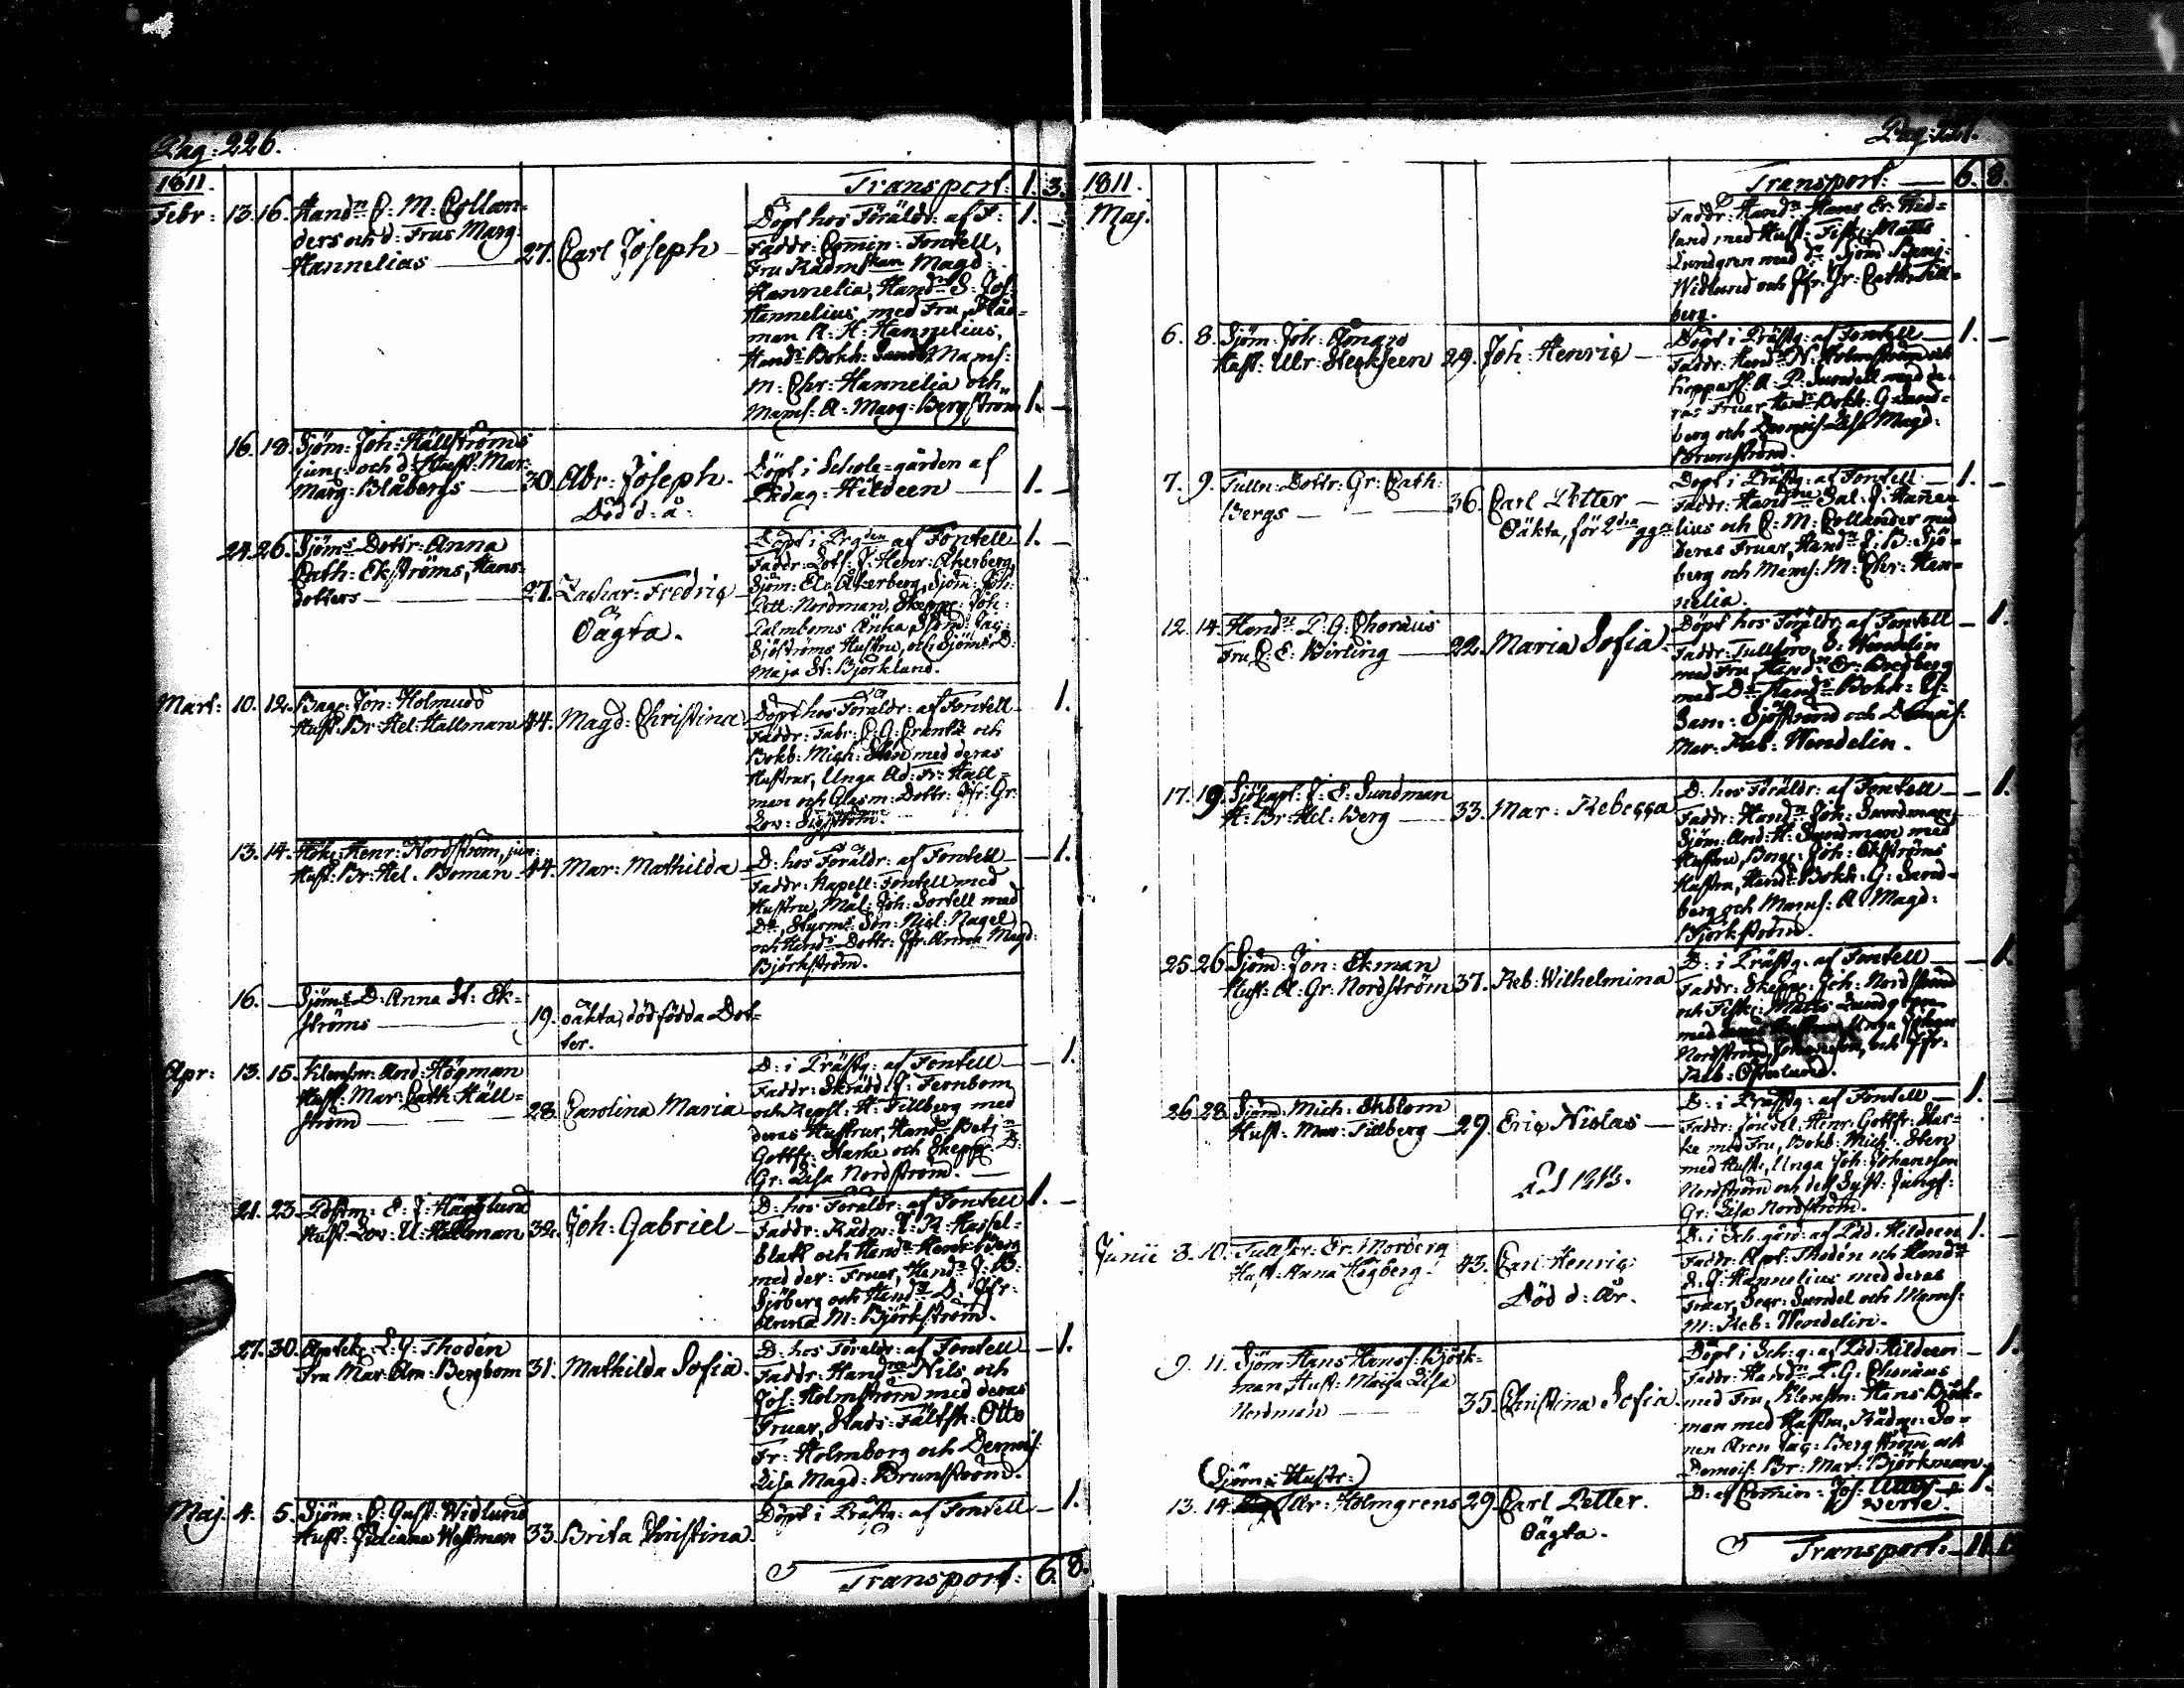 Pag: 226.
1811. Transport: 1. 3.
Febr: 13. 16. Handn C: M: Collan-
ders och d: Frus Marg:
Hannelias 27. Carl Joseph
Döpt hos Föräldr: af F: 1.
Faddr: Comin: Fontell,
Fru Rådmskan Magd:
Hannelia, Handn S: Jos:
Hannelius med Fru, Råd-
man A: H: Hannelius,
Hands Bokh: Mams:
M: Chr: Hannelia och
Mams: A: Marg: Bergström 1.
16. 18. Sjöm: Joh: Hällströms
jun: och d: Hust: Mar:
Marg: Blåbergs 30. Abr: Joseph.
Död d: å:
Döpt i Schole-gården af
Pædag: Hildeen 1.
24. 26. Sjöms Dottr: Anna
Cath: Ekströms, Hans-
dotters 27. Zachar: Fredriq
Oägta.
Döpt i Prgden af Fontell 1.
Faddr: Lots: J: Henr: Åkerberg,
Sjöm: El: Åkerberg, Sjöm: Joh:
Pett: Nordman, Skepps: Joh:
Palmboms Änka,
Sjöströms Hustru, och Sjöms D:
Maja St: Björklund.
Mart: 10. 12. Bag: Jon: Holmudd
Hust: Br: Hel: Hallman 44. Magd: Christina
Döpt hos Föräldr: af Fontell 1.
Faddr: Fabr: C: G: Crantz och
Bokb: Mich: Sten med deras
Hustrur, Unga Ad: Fr: Hall-
man och Glasm: Dottr: Jfr: Gr:
Lov:
13. 14. Henr: Nordström, jun:
Hust: Br: Hel: Boman 44. Mar: Mathilda
D: hos Föräldr: af Fontell 1.
Faddr: Kapell: Fontell med
Hustru, Mål: Joh: Sortell med
Do, Styrms Son: Nicl: Nagel
och Hands Dottr: Jfr: Anna Magd:
Björkström.
16. Sjöms D: Anna St: Ek-
ströms 19. oäkta, dödfödda Dot-
ter.
Apr: 13. 15. Klensm: And: Högman
Hust: Mar: Cath: Häll-
ström 28. Carolina Maria
D: i Prästg: af Fontell 1.
Faddr: Skrädd: J: Fernbom
och Repsl: H: Tillberg med
deras Hustrur, Hands Betj:
Gottfr: Starke och Skepps: D:
Gr: Lisa Nordström.
21. 23. E: J: Hägglund
Hust: Lov: U: Hallman 32. Joh: Gabriel
D: hos Föräldr: af Fontell 1.
Faddr: Rådm: J: R: Hassel-
blatt och Handn Henr: Berg
med der: Fruar, Handn J: B:
Sjöberg och Hands D: Jfr:
Anna M: Björkström.
27. 30. Apothek: L: G: Thodén
Fru Mar: Alm: Bergbom 31. Mathilda Sofia.
D: hos Föräldr: af Fontell 1.
Faddr: Handrne Nils och
Jos: Holmström med deras
Fruar, Stads-Fältsk: Otto
Fr: Holmborg och Demois:
Lisa Magd: Brunström.
Maj. 4. 5. Sjöm: C: Gust: Widlund
Hust: Juliana Westman 33. Brita Christina.
Döpt i Prästg: af Fontell 1.
Transport: 6. 8.
Pag: 227.
1811. Transport: 6. 8.
Maj.
Faddr: Handn Hans Er: Wid-
lund med Hust: Fisk: Matts
Lundgren med do, Sjöm: Benj:
Widlund och Jfr: Gr: Cath: Till-
berg.
6. 8. Sjöm: Joh:
Hust: Ulr: 29. Joh: Henriq
Döpt i Prästg: af Fontell 1.
Faddr: Handn N: Holmström och
Kopparsl: A: P: Sundell med de-
ras Fruar, Hands Bokh: G: Sand-
berg och Demois: Lisa Magd:
Brunström.
7. 9. Tulln: Dottr: Gr: Cath:
Bergs 36. Carl Petter
Oäkta, för 2dra ggn
Döpt i Prästg: af Fontell 1.
Faddr: Handrne Sal: J: Hanne-
lius och C: M: Collander med
deras Fruar, Handn J: B: Sjö-
berg och Mams: M: Chr: Han-
nelia.
12. 14. Handn P: G: Choræus
Fru C: E: Wirling 22. Maria Sofia.
Döpt hos Föräldr: af Fontell 1.
Faddr: Tullförv: S: Wendelin
med Fru, Handn Er: Bredberg
med Do, Hands Bokh: Is:
Sam: Sjöstrand och Demois:
Mar: Reb: Wendelin.
17. 19. Sjökapt: J: E: Sundman
H: Br: Hel: Berg 33. Mar: Rebecca
D: hos Föräldr: af Fontell 1.
Faddr: Handn Joh: Sundman,
Sjöm: And: H: Sundman med
Hustru, Borg: Joh: Ekströms
Hustru, Hands Bokh: G: Sand-
berg och Mams: A: Magd:
Björkström.
25. 26. Sjöm: Jon: Ekman
Hust: A: Gr: Nordström 37. Reb: Wilhelmina
D: i Prästg: af Fontell 1.
Faddr: Skepps: Joh: Nordström
och Fisk: Matts Lundgren
med Unga
Nordström, och Jfr:
Reb: Österlund.
26. 28. Sjöm: Mich: Ekblom
Hust: Mar: Tillberg 29. Eriq Niclas
Död 1813.
D: i Prästg: af Fontell 1.
Faddr: Henr: Gottfr: Star-
ke med Fru, Bokb: Mich: Sten
med Hust:, Unga Joh: Johansson
Nordström och dess Syst: Jungf:
Gr: Lisa Nordström.
Junii 8. 10. Tullskr: Er: Morberg
Hust: Anna Högberg 43. Carl Henriq
Död d: År.
D: i Sch: gård: af Pæd: Hildeen 1.
Faddr: Apot: Thodén och Handn
S: J: Hannelius med deras
Fruar, Segr: Sundel och Mams:
M: Reb: Wendelin.
9. 11. Sjöm: Hans Hanss: Björk-
man, Hust: Maija Lisa
Nordman 35. Christina Sofia.
Döpt i Sch: g: af Pæd: Hildeen 1.
Faddr: Handn P: G: Choræus
med Fru, Klensm: Hans Björk-
man med Hustru, Rådm: So-
nen Aron Jaq: Bergström och
Demois: Br: Mar: Björkman.
(Sjöm: Hustr:)
13. 14. Ulr: Holmgrens 29. Carl Petter.
Oägta.
D: af Comin: Jos: 1.
verte.
Transport: 11.